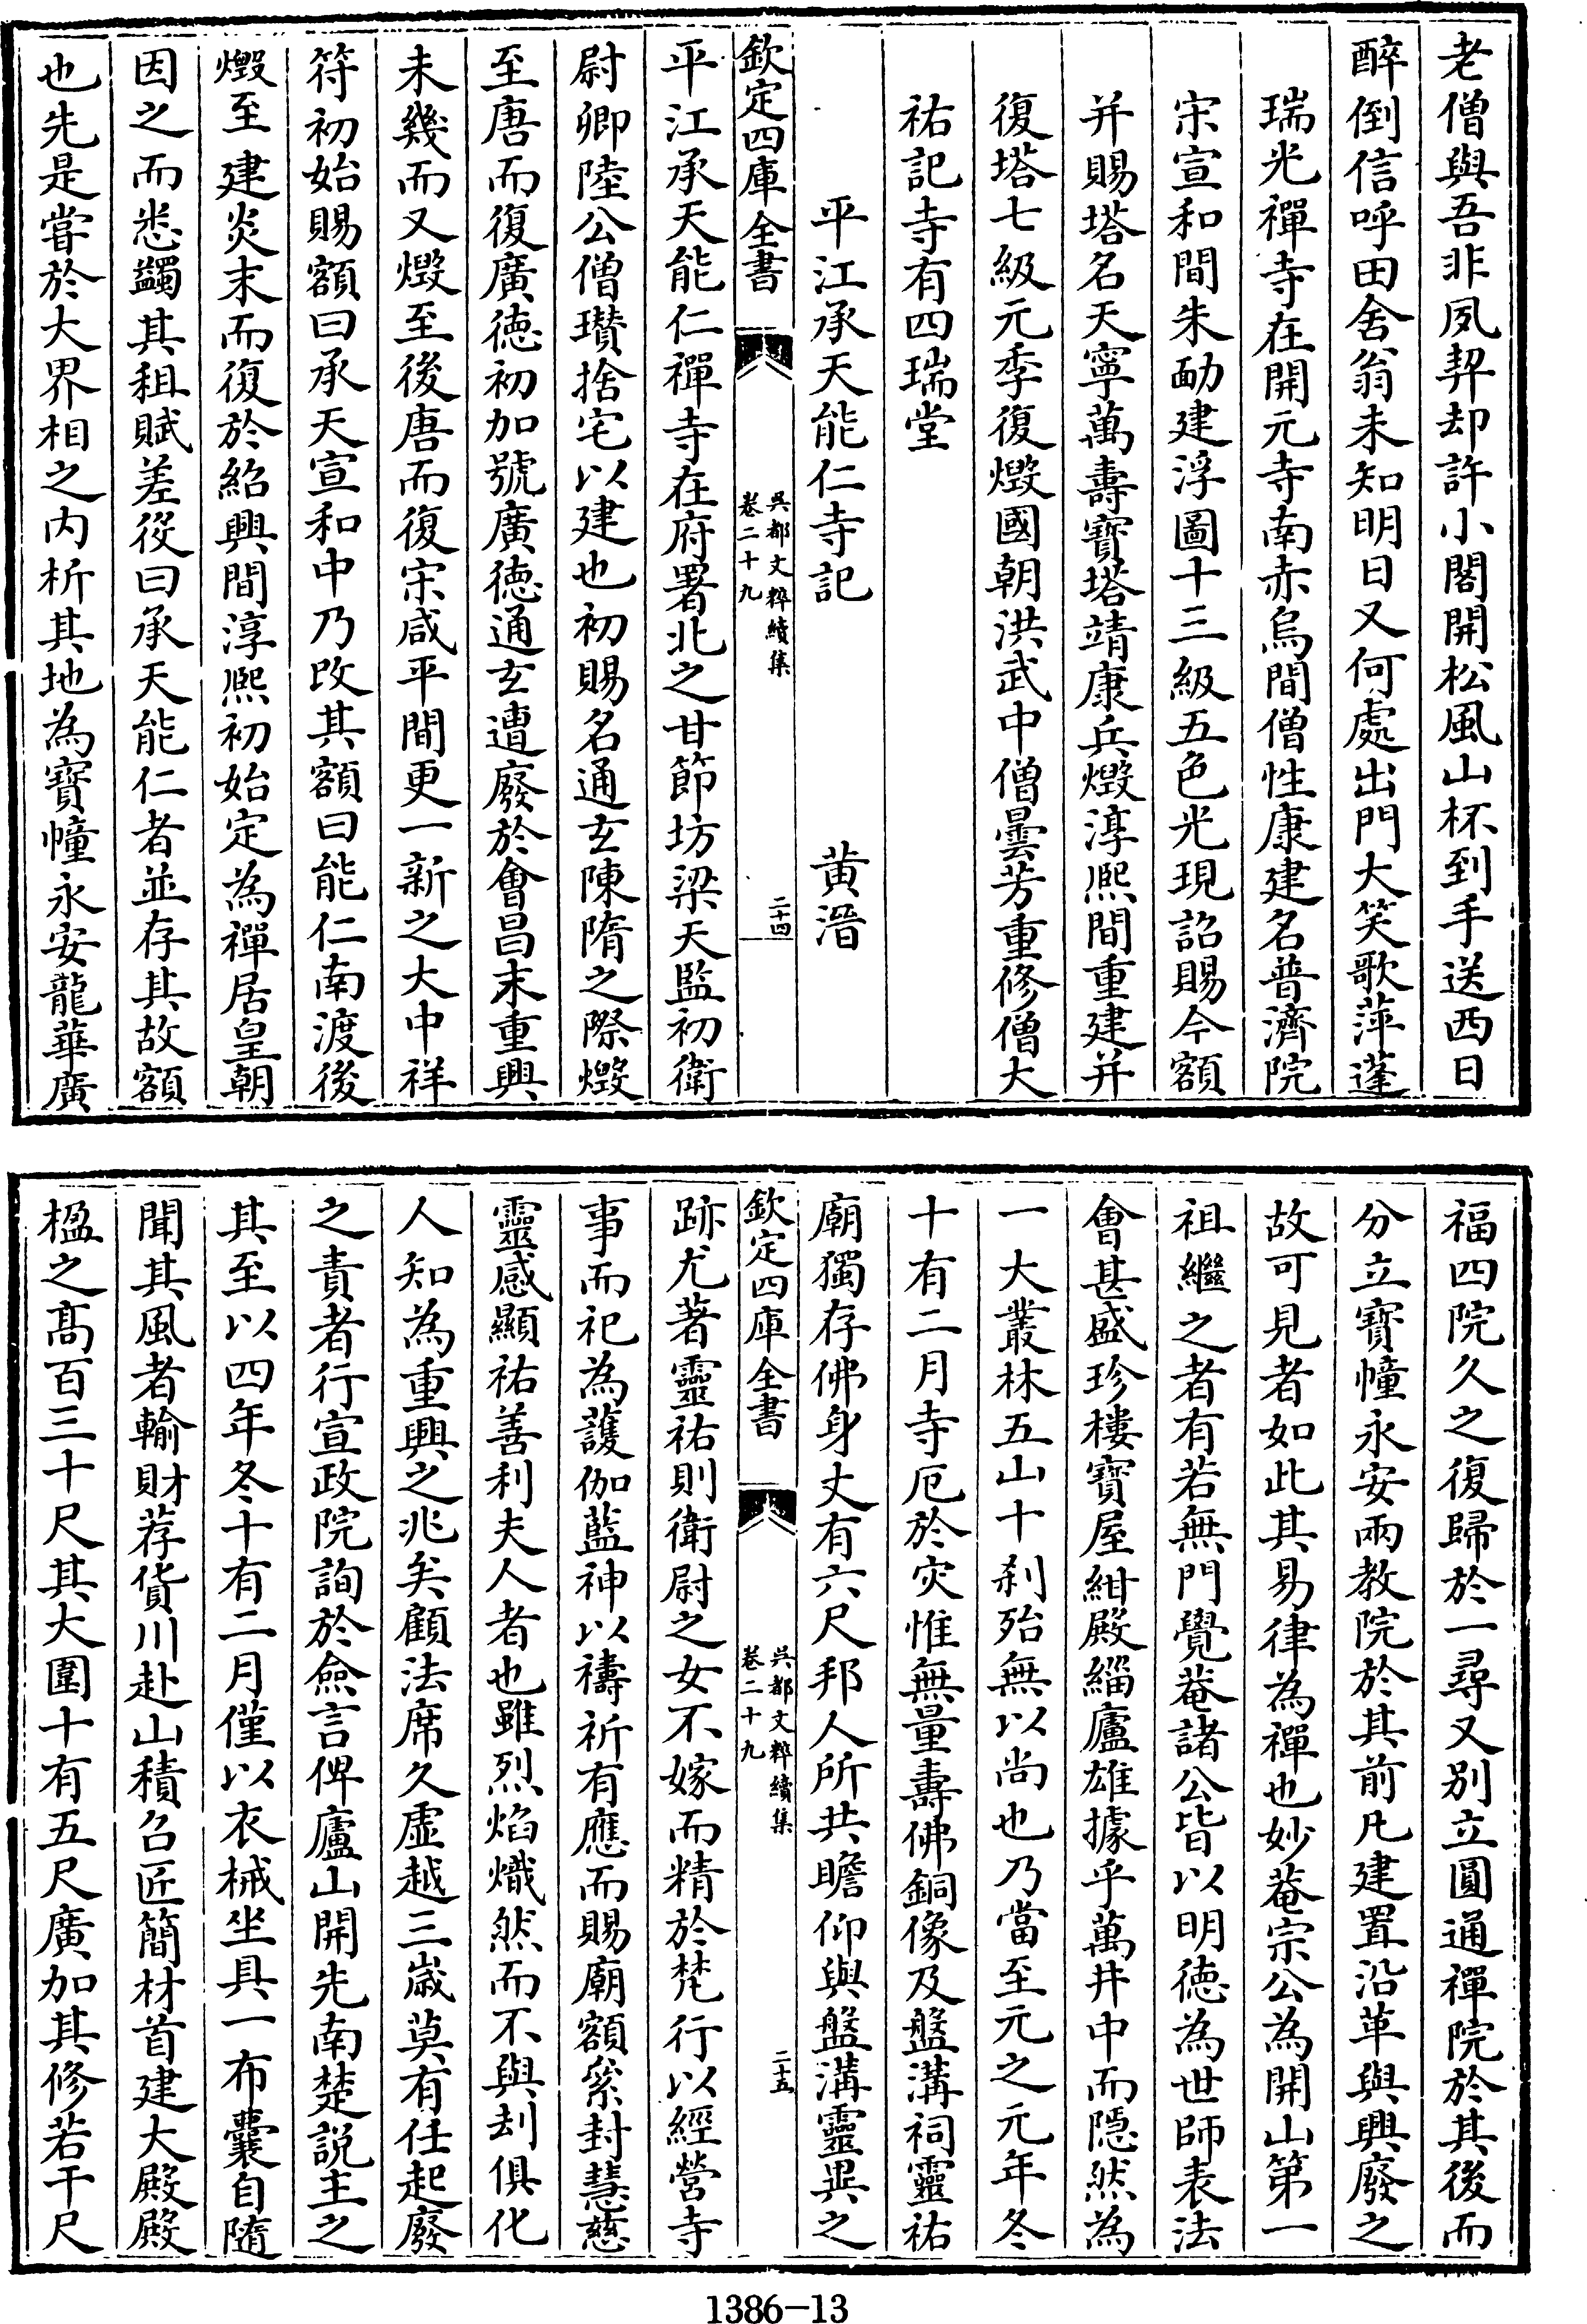 老僧與吾非夙契却許小閣開松風山杯到手送西日
醉倒信呼田舍翁未知明日又何處出門大笑歌萍蓬
瑞光禪寺在開元寺南赤烏間僧性康建名普濟院
宋宣和間朱勔建浮圖十三級五色光現詔賜今額
并賜塔名天寧萬壽寶塔靖康兵燬淳熙間重建并
復塔七級元季復燬國朝洪武中僧曇芳重修僧大
祐記寺有四瑞堂
平江承天能仁寺記 黄溍
欽定四庫全書 吳都文粹續集 卷二十九 二十四
平江承天能仁禪寺在府署北之甘節坊梁天監初衛
尉卿陸公僧瓚捨宅以建也初賜名通玄陳隋之際燬
至唐而復廣德初加號廣德通玄遭廢於會昌末重興
未幾而又燬至後唐而復宋咸平間更一新之大中祥
符初始賜額曰承天宣和中乃改其額曰能仁南渡後
燬至建炎末而復於紹興間淳熙初始定為禪居皇朝
因之而悉蠲其租賦差役曰承天能仁者並存其故額
也先是嘗於大界相之内析其地為寶幢永安龍華廣
福四院久之復歸於一尋又别立圓通禪院於其後而
分立寶幢永安兩教院於其前凡建置沿革與興廢之
故可見者如此其易律為禪也妙菴宗公為開山第一
祖繼之者有若無門覺菴諸公皆以明德為世師表法
會甚盛珍樓寶屋紺殿緇廬雄據乎萬井中而隱然為
一大叢林五山十刹殆無以尚也乃當至元之元年冬
十有二月寺厄於灾惟無量壽佛銅像及盤溝祠靈祐
廟獨存佛身丈有六尺邦人所共瞻仰與盤溝靈異之
欽定四庫全書 吳都文粹續集 卷二十九 二十五
跡尤著靈祐則衛尉之女不嫁而精於梵行以經營寺
事而祀為護伽藍神以禱祈有應而賜廟額綮封慧慈
靈感顯祐善利夫人者也雖烈焰熾然而不與刦俱化
人知為重興之兆矣顧法席久虚越三歳莫有任起廢
之責者行宣政院詢於僉言俾廬山開先南楚説主之
其至以四年冬十有二月僅以衣裓坐具一布囊自隨
聞其風者輸財荐貨川赴山積召匠簡材首建大殿殿
楹之髙百三十尺其大圍十有五尺廣加其修若干尺
1386-13